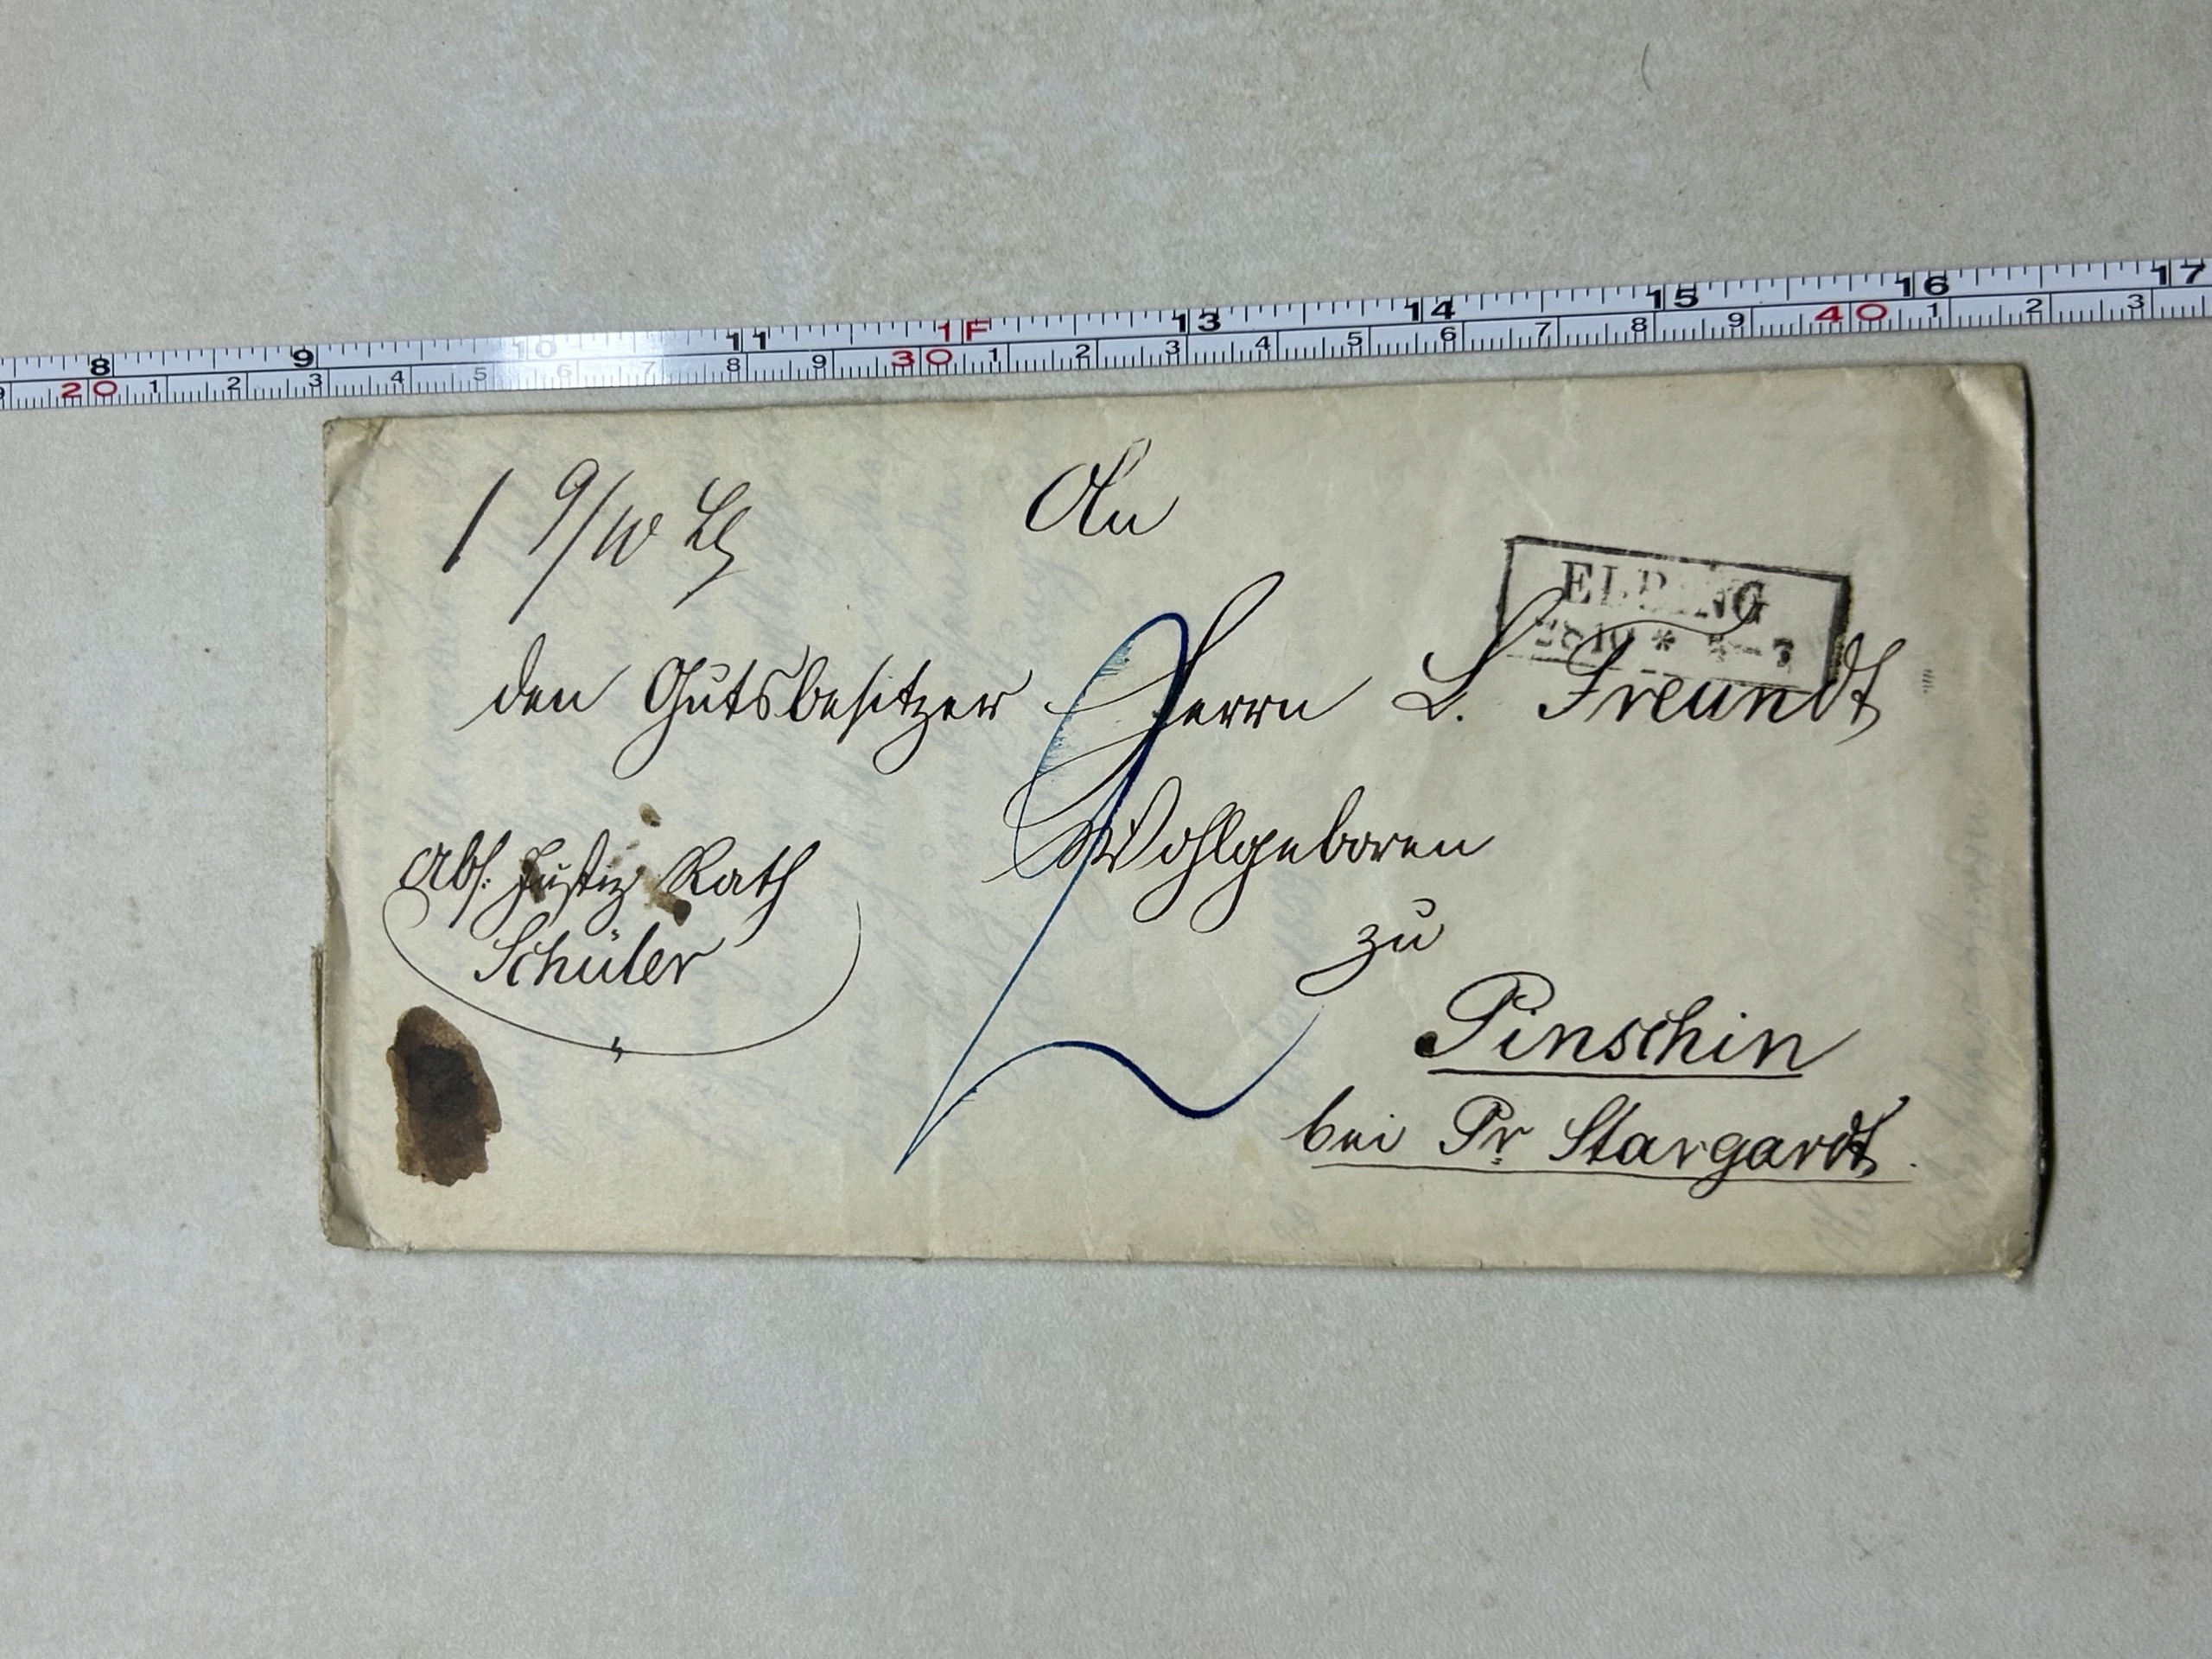 8 9 10 11 1F 13 14 15 16 17
20 1 2 3 4 5 6 7 8 9 30 1 2 3 4 5 6 7 8 9 40 1 2 3
An
ELBING
den Gutsbesitzer Herrn L. Freundt
Wohlgeboren
Abs. Justiz Rath
Schüler
zu
Pinschin
bei Pr Stargardt.